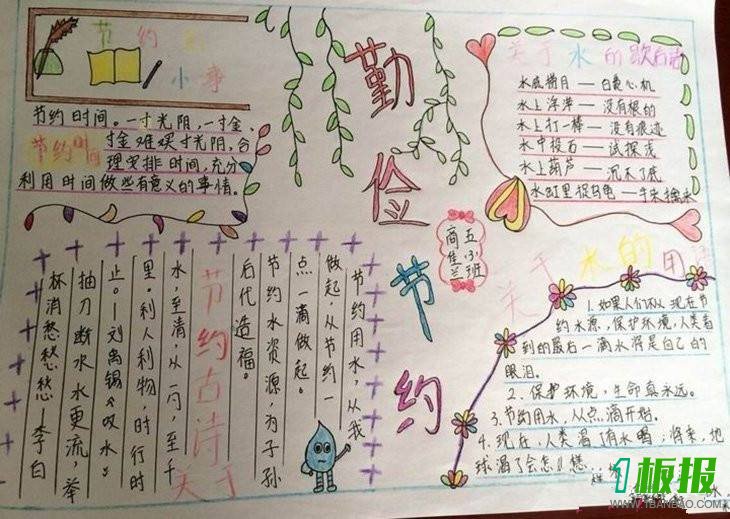 节约
小事
节约时间。一寸光阴,一寸金、
寸金难买寸光阴,合
节约时间
理安排时间,充分
利用时间做些有意义的事情。
勤俭节约
五(3)班
商佳兰
关于水的歇后语
水底捞月——白费心机
水上浮萍——没有根的
水上打一棒——没有痕迹
水中投石——试探浅
水上葫芦——沉不了底
水缸里捉乌龟——手来擒来
节约用水,从我
做起,从节约一
点一滴做起。
节约水资源,为子孙
后代造福。
关于
节约古诗
水,至清,从一勺,至千
里。利人利物,时行时
止。——刘禹锡《叹水》
抽刀断水水更流,举
杯消愁愁愁—李白
关于水的用
1.如果人们不从现在节
约水源,保护环境,人类看
到的最后一滴水将是自己的
眼泪。
2.保护环境,生命真永远。
3.节约用水,从点滴开始。
4.现在,人类渴了有水喝;将来,地
球渴了会怎么样…
板报
WWW.1BANBAO.COM